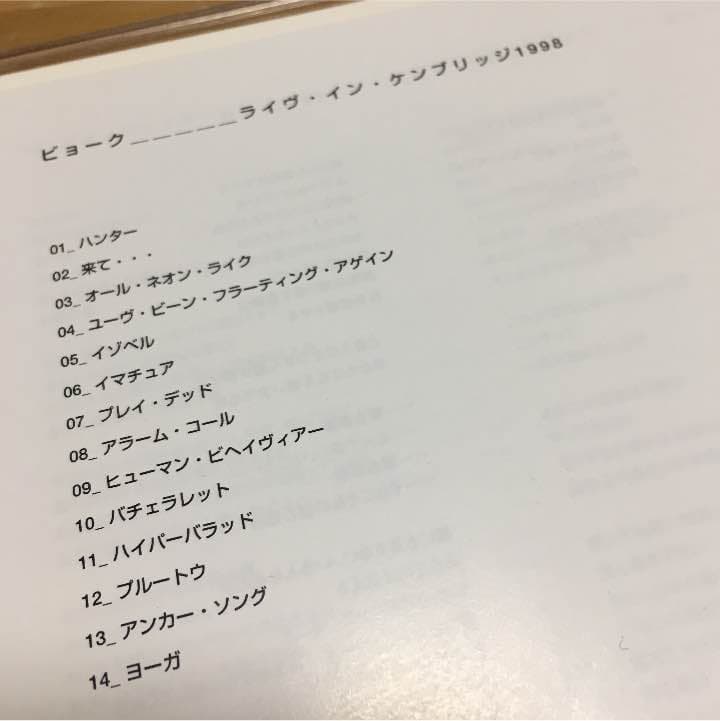 ビョーク_____ライヴ・イン・ケンブリッジ1998
01_ ハンター
02_ 来て・・・
03_ オール・ネオン・ライク
04_ ユーヴ・ビーン・フラーティング・アゲイン
05_ イゾベル
06_ イマチュア
07_ プレイ・デッド
08_ アラーム・コール
09_ ヒューマン・ビヘイヴィアー
10_ バチェラレット
11_ ハイパーバラッド
12_ プルートウ
13_ アンカー・ソング
14_ ヨーガ